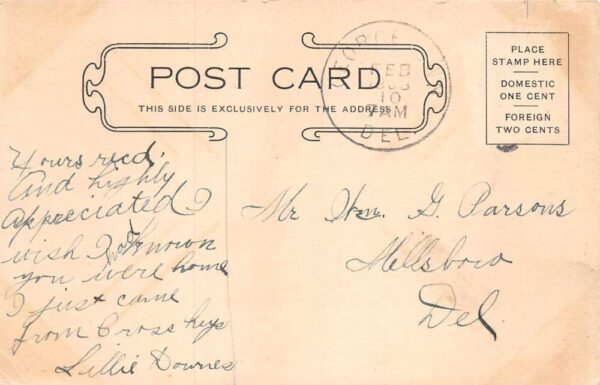 POST CARD
THIS SIDE IS EXCLUSIVELY FOR THE ADDRESS
FEB
10
7 AM
DEL.
PLACE
STAMP HERE
DOMESTIC
ONE CENT
FOREIGN
TWO CENTS
Yours recd.
And highly
appreciated I
wish I had known
you were home
I just came
from Cross keys
Lillie Downes
Mr Wm. G. Parsons
Millsboro
Del.